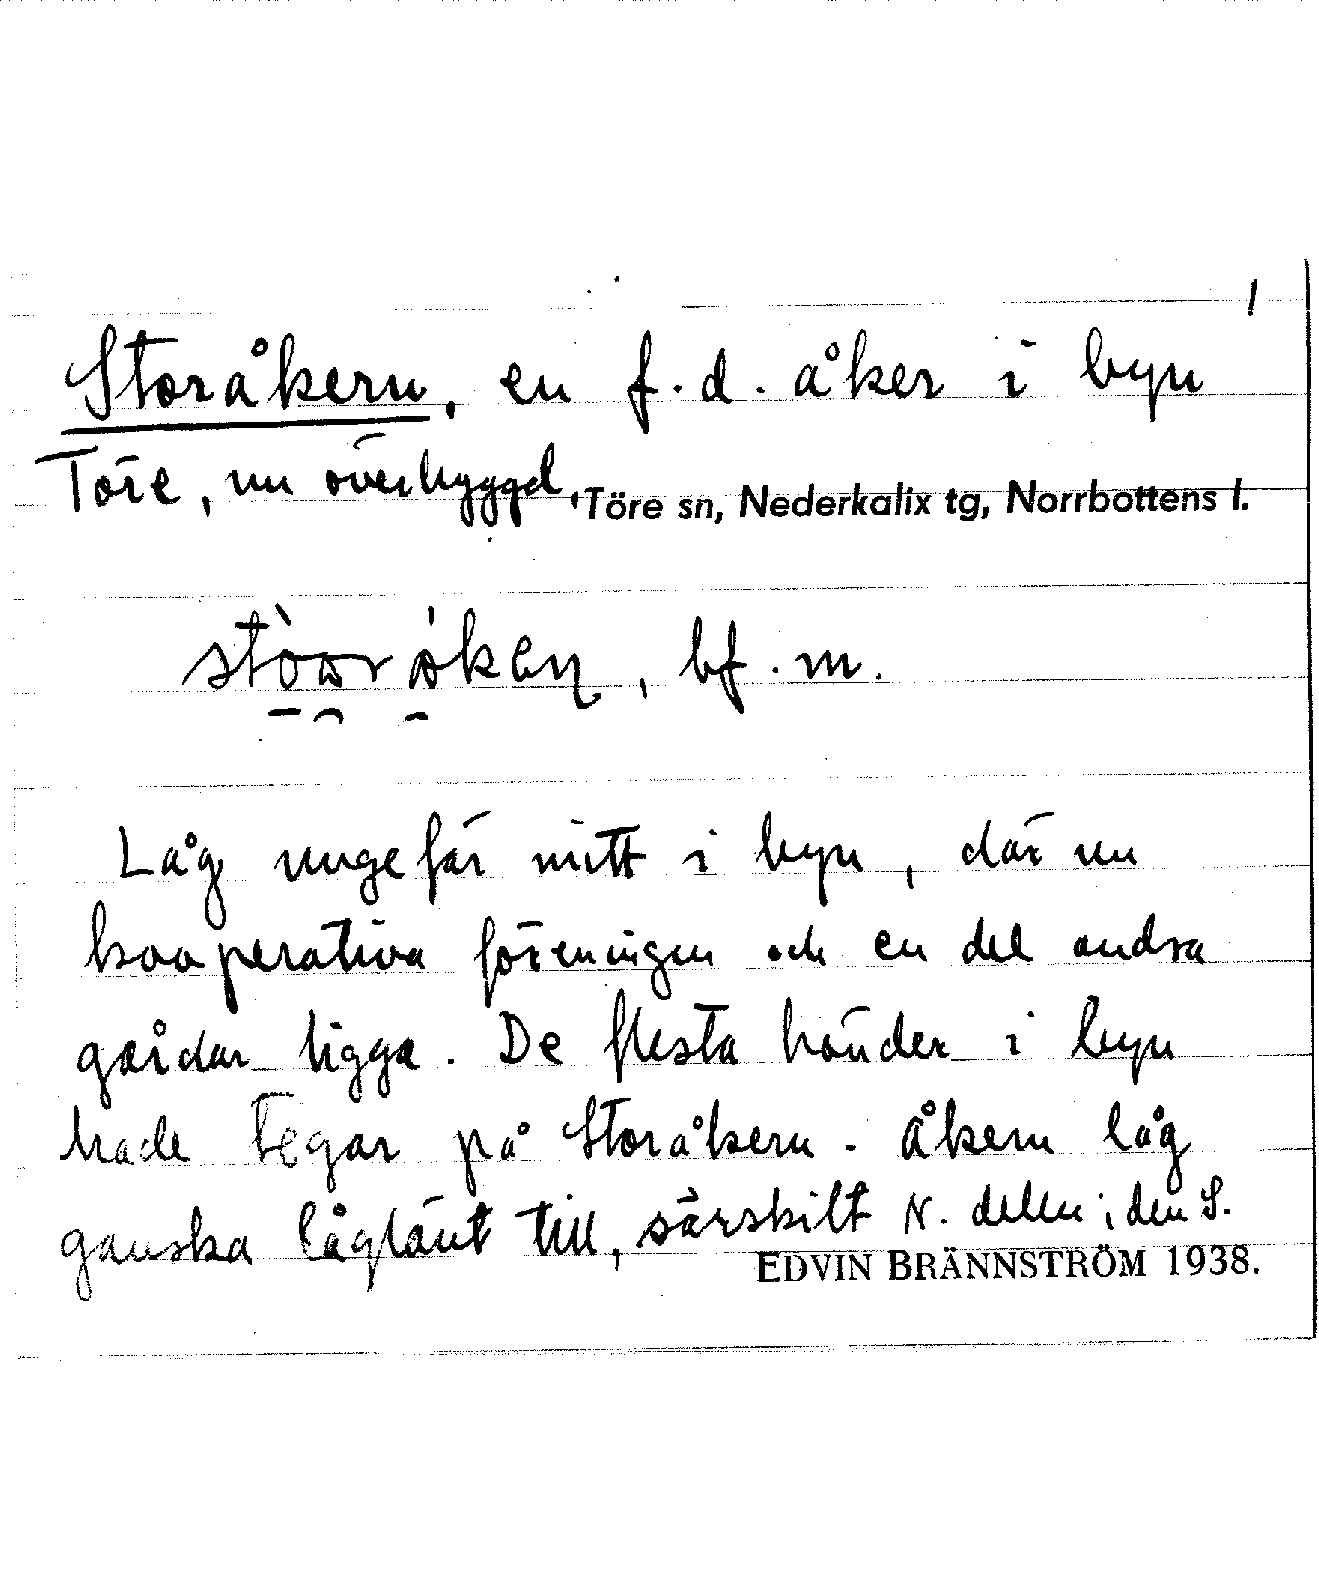 1
Storåkern, en f.d. åker i byn
Töre, nu överbyggd, Töre sn, Nederkalix tg, Norrbottens l.
bf. m.
Låg ungefär mitt i byn, där nu
kooperativa föreningen och en del andra
gårdar ligga. De flesta bönder i byn
hade tegar på Storåkern. Åkern låg
ganska låglänt till, särskilt N. delen; den S.
EDVIN BRÄNNSTRÖM 1938.